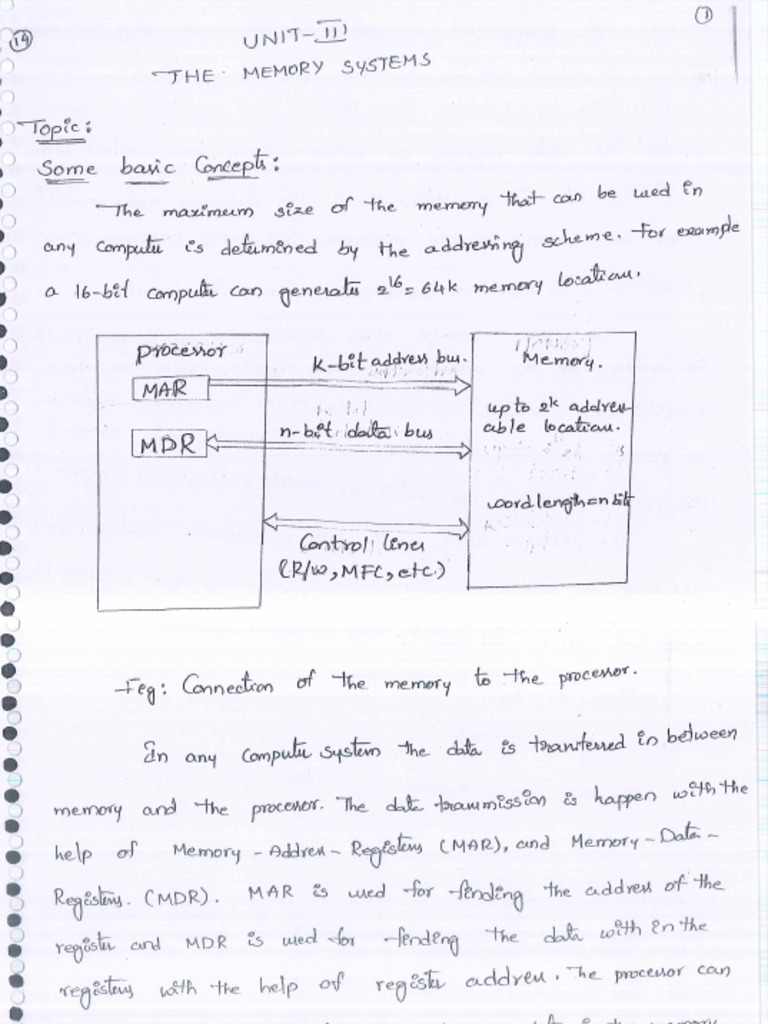 14
1
UNIT-II
THE MEMORY SYSTEMS
Topic:
Some basic Concepts:
The maximum size of the memory that can be used in
any computer is determined by the addressing scheme. For example
a 16-bit computer can generates 2^16 = 64k memory location.
processor
MAR
MDR
k-bit address bus.
n-bit data bus
Control lines
(R/w, MFC, etc.)
Memory.
up to 2^k address
able location.
word length = n bits
Fig: Connection of the memory to the processor.
In any computer system the data is transferred in between
memory and the processor. The data transmission is happen with the
help of Memory - Address - Registers (MAR), and Memory - Data -
Registers. (MDR). MAR is used for finding the address of the
register and MDR is used for finding the data with in the
registers with the help of register address. The processor can